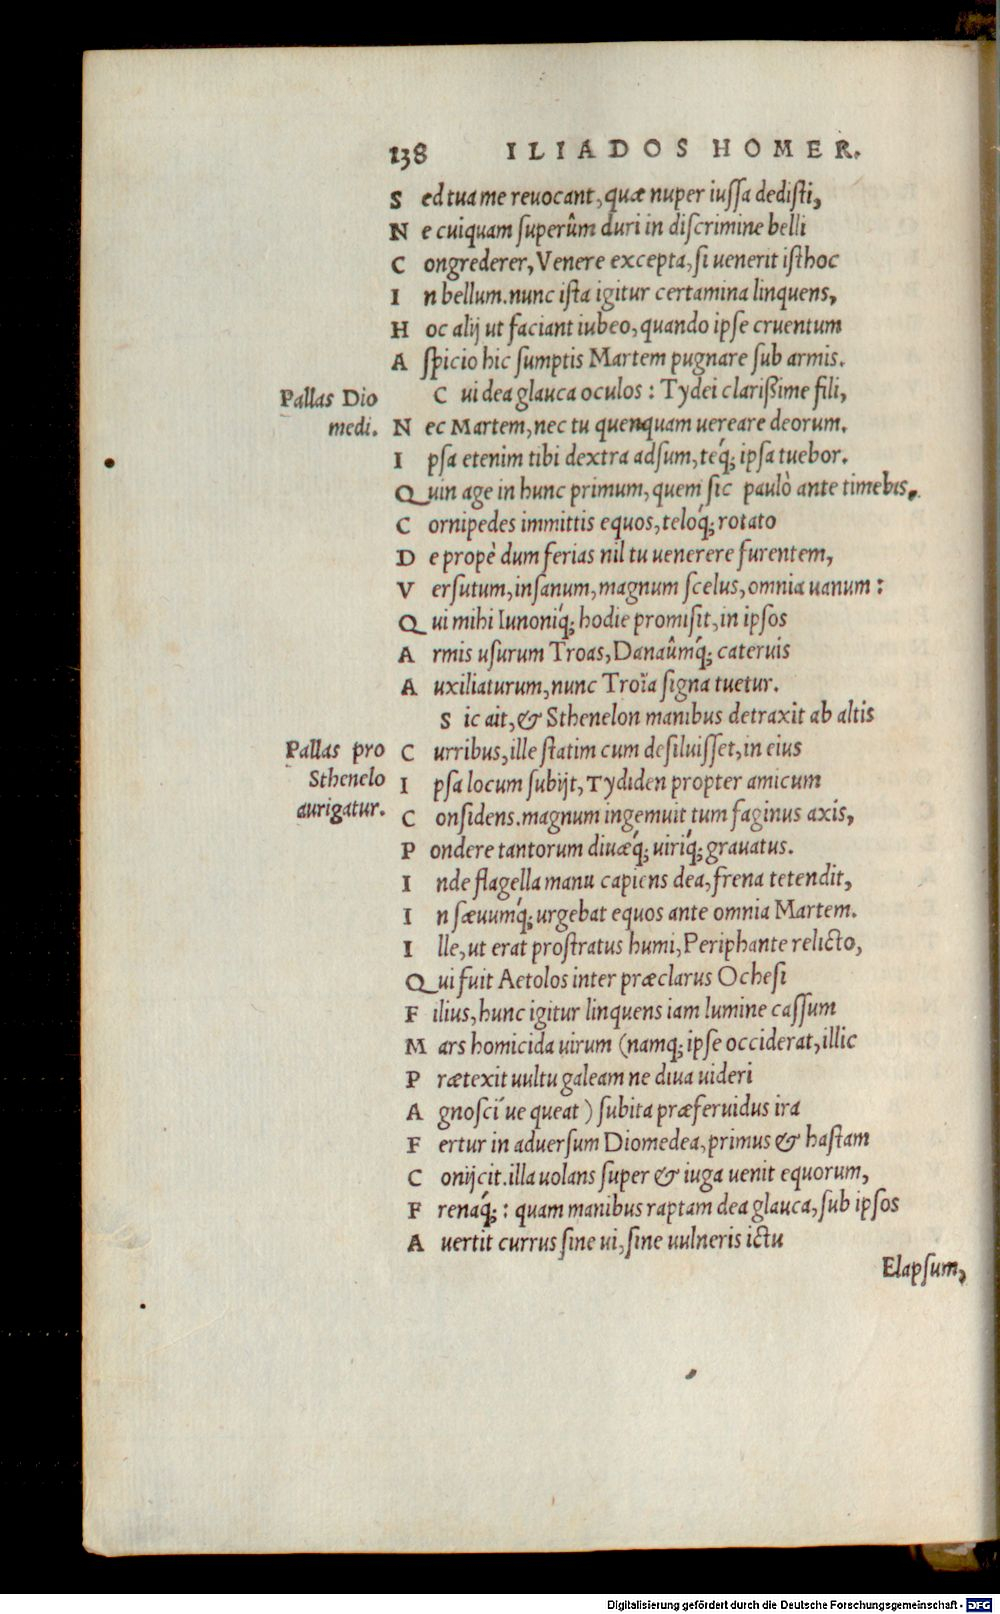 138 ILIADOS HOMER.
Sed tua me reuocant, quæ nuper iussa dedisti,
Ne cuiquam superûm duri in discrimine belli
Congrederer, Venere excepta, si uenerit isthoc
In bellum. nunc ista igitur certamina linquens,
Hoc alij ut faciant iubeo, quando ipse cruentum
Aspicio hic sumptis Martem pugnare sub armis.
Pallas Dio
medi.
Cui dea glauca oculos : Tydei clarißime fili,
Nec Martem, nec tu quenquam uereare deorum.
Ipsa etenim tibi dextra adsum, téq; ipsa tuebor.
Quin age in hunc primum, quem sic paulò ante timebis,
Cornipedes immittis equos, telóq; rotato
De propè dum ferias nil tu uenerere furentem,
Versutum, insanum, magnum scelus, omnia uanum :
Qui mihi Iunoníq; hodie promisit, in ipsos
Armis usurum Troas, Danaûmq́; cateruis
Auxiliaturum, nunc Troïa signa tuetur.
Sic ait, & Sthenelon manibus detraxit ab altis
Pallas pro
Sthenelo
aurigatur.
Curribus, ille statim cum desiluisset, in eius
Ipsa locum subijt, Tydiden propter amicum
Considens. magnum ingemuit tum faginus axis,
Pondere tantorum diuæq́; uiriq́; grauatus.
Inde flagella manu capiens dea, frena tetendit,
In sæuumq́; urgebat equos ante omnia Martem.
Ille, ut erat prostratus humi, Periphante relicto,
Qui fuit Aetolos inter præclarus Ochesi
Filius, hunc igitur linquens iam lumine cassum
Mars homicida uirum (namq; ipse occiderat, illic
Prætexit uultu galeam ne diua uideri
Agnosci´ue queat ) subita præferuidus ira
Fertur in aduersum Diomedea, primus & hastam
Conijcit. illa uolans super & iuga uenit equorum,
Frenaq́; : quam manibus raptam dea glauca, sub ipsos
Auertit currus sine ui, sine uulneris ictu
Elapsum,
Digitalisierung gefördert durch die Deutsche Forschungsgemeinschaft - DFG